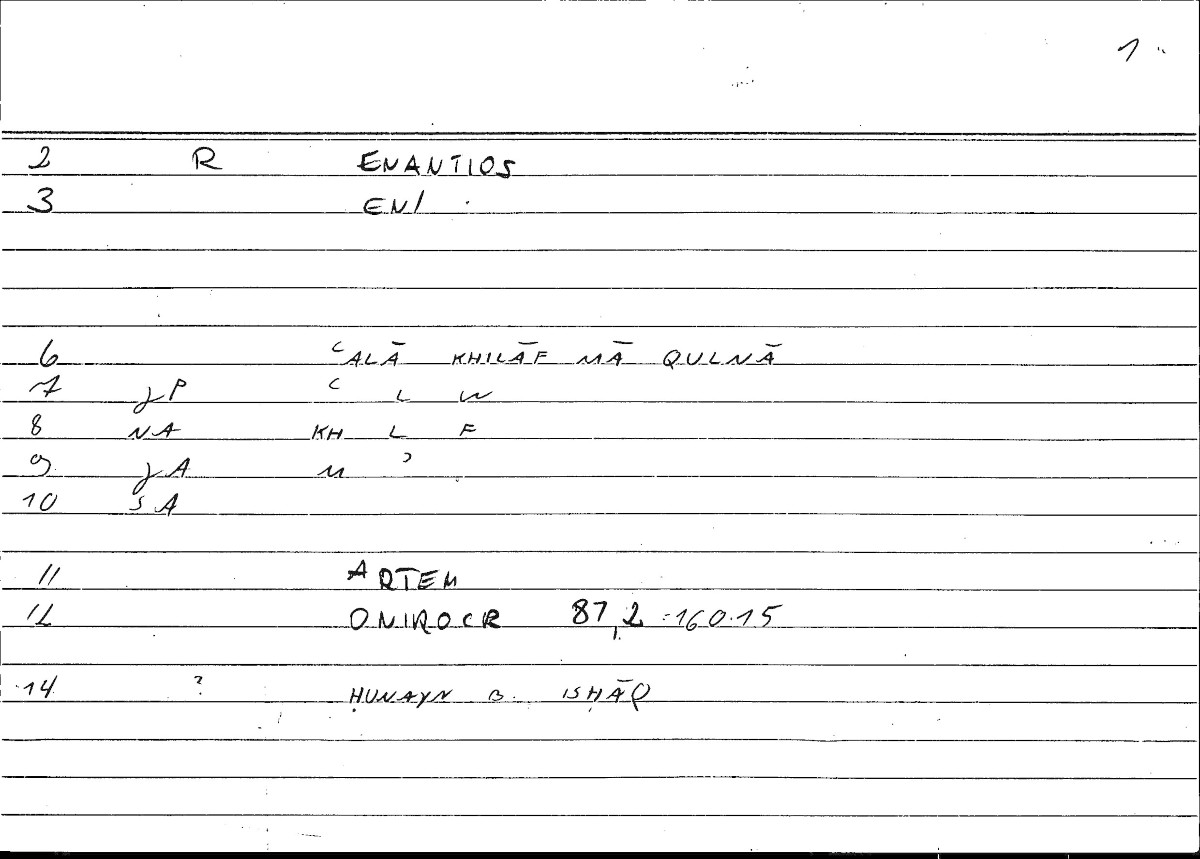 1
2 R ENANTIOS
3 EN/
6 ʿALĀ KHILĀF MĀ QULNĀ
7 JP ʿ L W
8 NA KH L F
9 JA M ʾ
10 SA
11 ARTEM
12 ONIROCR 87,2 = 160.15
14 ? ḤUNAYN B. ISḤĀQ